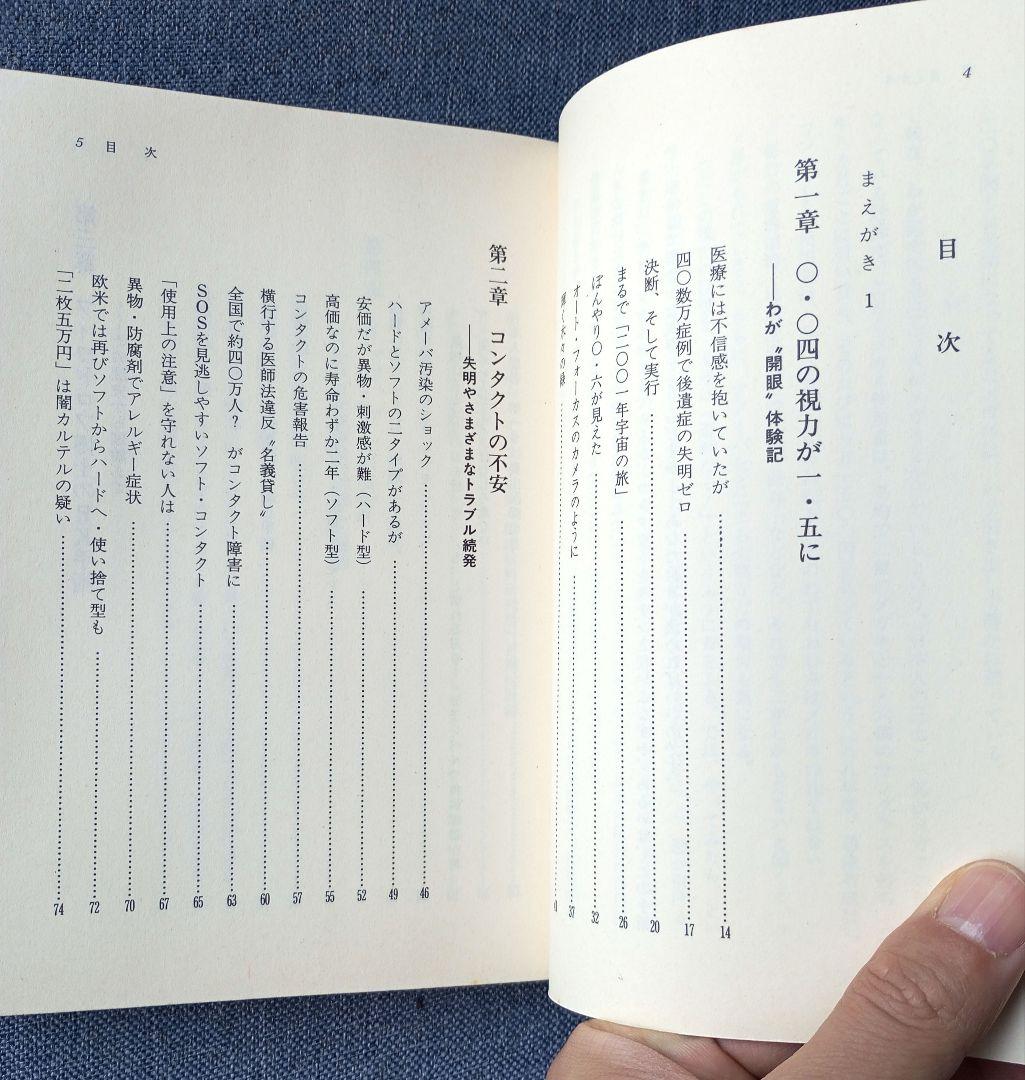 4
目次
まえがき 1
第一章 〇・〇四の視力が一・五に
——わが〝開眼〟体験記
医療には不信感を抱いていたが……14
四〇数万症例で後遺症の失明ゼロ……17
決断、そして実行……20
まるで「二〇〇一年宇宙の旅」……26
ぼんやり〇・六が見えた……32
オート・フォーカスのカメラのように……37
5 目次
第二章 コンタクトの不安
——失明やさまざまなトラブル続発
アメーバ汚染のショック……46
ハードとソフトの二タイプがあるが……49
安価だが異物・刺激感が難(ハード型)……52
高価なのに寿命わずか二年(ソフト型)……55
コンタクトの危害報告……57
横行する医師法違反〝名義貸し〟……60
全国で約四〇万人? がコンタクト障害に……63
SOSを見逃しやすいソフト・コンタクト……65
「使用上の注意」を守れない人は……67
異物・防腐剤でアレルギー症状……70
欧米では再びソフトからハードへ・使い捨て型も……72
「二枚五万円」は闇カルテルの疑い……74